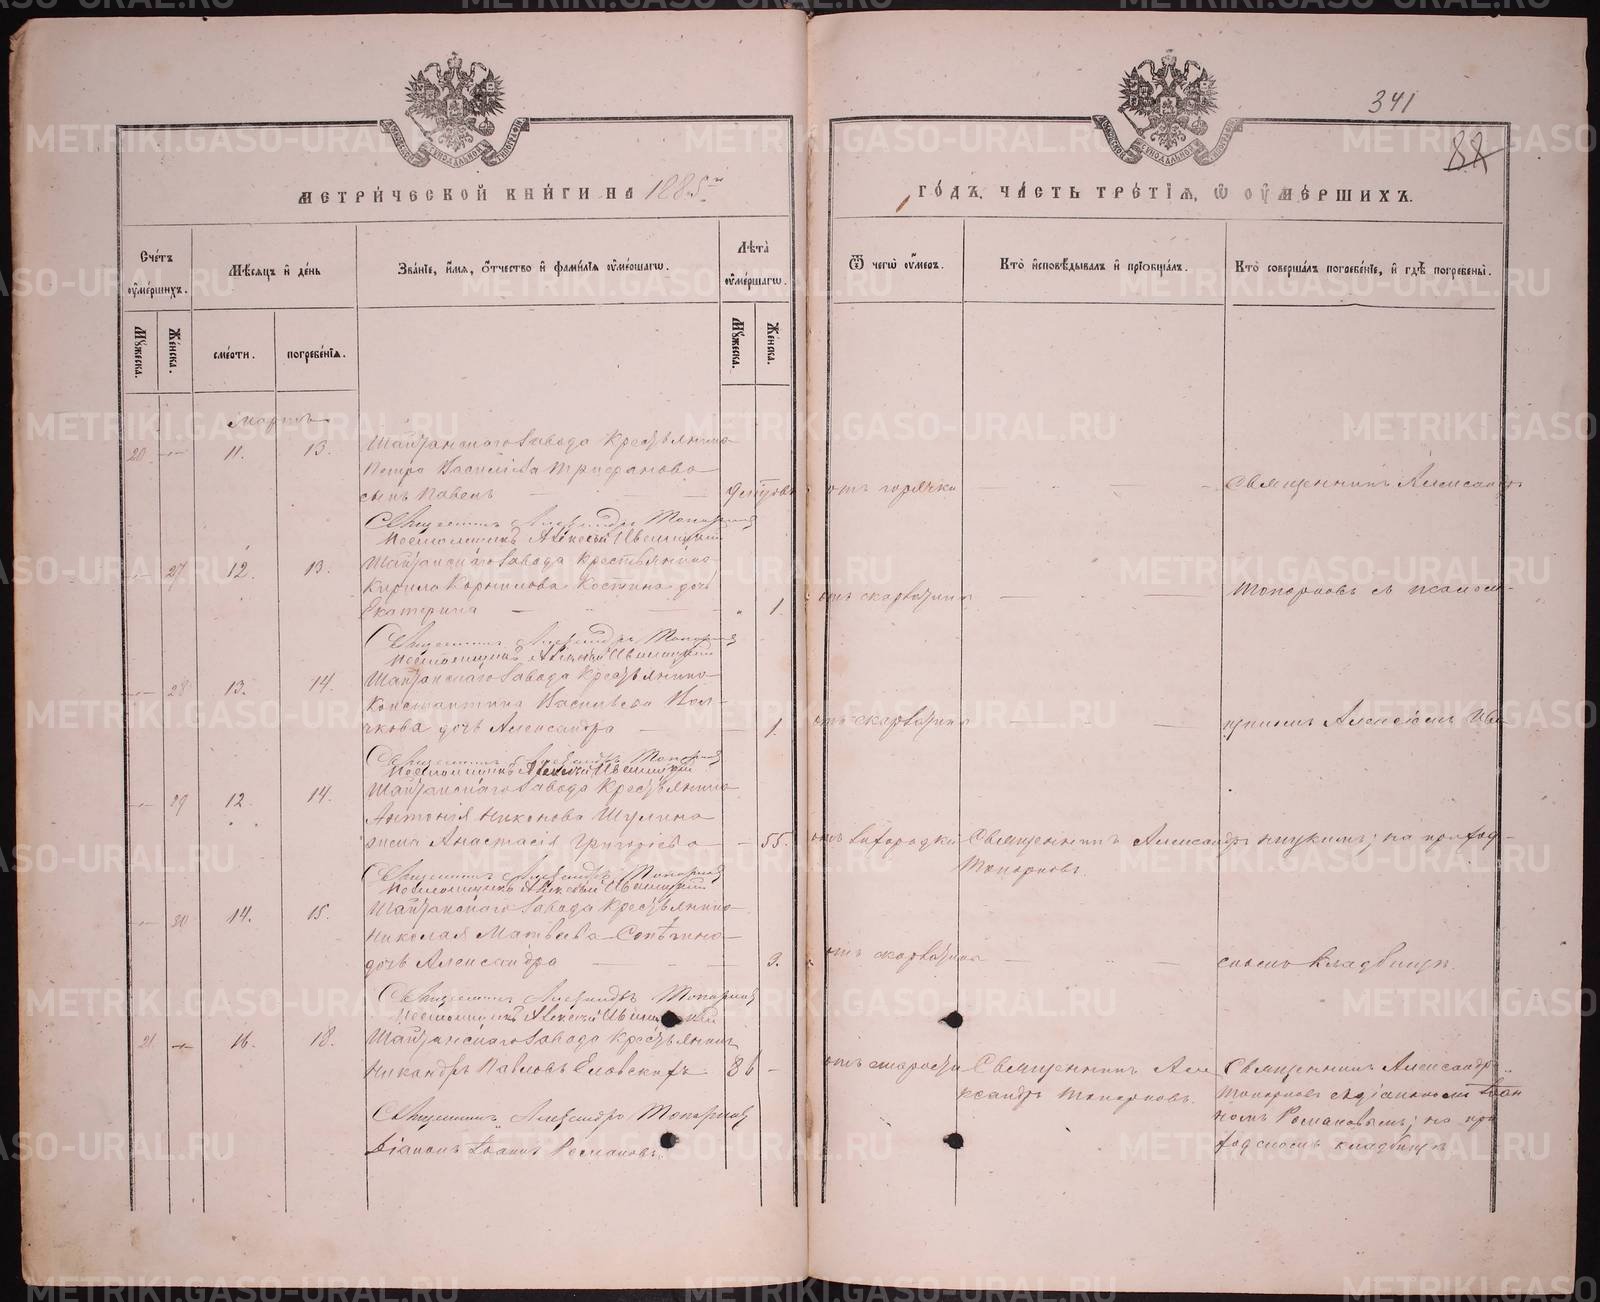 341
88
МЕТРИЧЕСКОЙ КНИГИ НА 1885й
ГОДЪ, ЧАСТЬ ТРЕТІЯ, Ѿ ОУМЕРШИХЪ.
Счетъ оумершихъ.
Мѣсяцъ и день
Званіе, имя, отчество и фамилія оумершагω.
Лѣта оумершагω.
Ѿ чегω оумеръ.
Кто исповѣдывалъ и пріобщалъ.
Кто совершалъ погребеніе, и гдѣ погребены.
Мужеска.
Женска.
смерти.
погребенія.
Мужеска.
Женска.
Мартъ
20 11. 13. Шайтанскаго завода крестьянина
Петра Васильева Трифанова
сынъ Павелъ
отъ горячки
Священникъ Александръ
Священникъ Александръ Топорковъ
Псаломщикъ Алексѣй Ивницкій
27 12. 13. Шайтанскаго завода крестьянина
Кирила Корнилова Костина дочь
Екатерина 1.
отъ скарлатины
Топорковъ съ псалом-
Священникъ Александръ Топорковъ
Псаломщикъ Алексѣй Ивницкій
28 13. 14. Шайтанскаго завода крестьянина
Константина Васильева Вол-
чкова дочь Александра 1.
отъ скарлатины
щикомъ Алексѣемъ Ив-
Священникъ Александръ Топорковъ
Псаломщикъ Алексѣй Ивницкій
29 12. 14. Шайтанскаго завода крестьянина
Антонія Никонова Шулина
жена Анастасія Григорьева 55.
Священникъ Александръ
Топорковъ.
ницкимъ; на приход-
Священникъ Александръ Топорковъ
Псаломщикъ Алексѣй Ивницкій
30 14. 15. Шайтанскаго завода крестьянина
Николая Матвѣева
дочь Александра 3.
отъ скарлатины
скомъ кладбищѣ.
Священникъ Александръ Топорковъ
Псаломщикъ Алексѣй
21 16. 18. Шайтанскаго завода крестьянинъ
Никандръ Павловъ Еловскихъ 86
отъ старости
Священникъ Але
ксандръ Топорковъ.
Священникъ Александръ
Топорковъ съ діакономъ Іоан
номъ Романовымъ; на при
ходскомъ кладбищѣ
Священникъ Александръ Топорковъ
Діаконъ Іоаннъ Романовъ.
METRIKI.GASO-URAL.RU